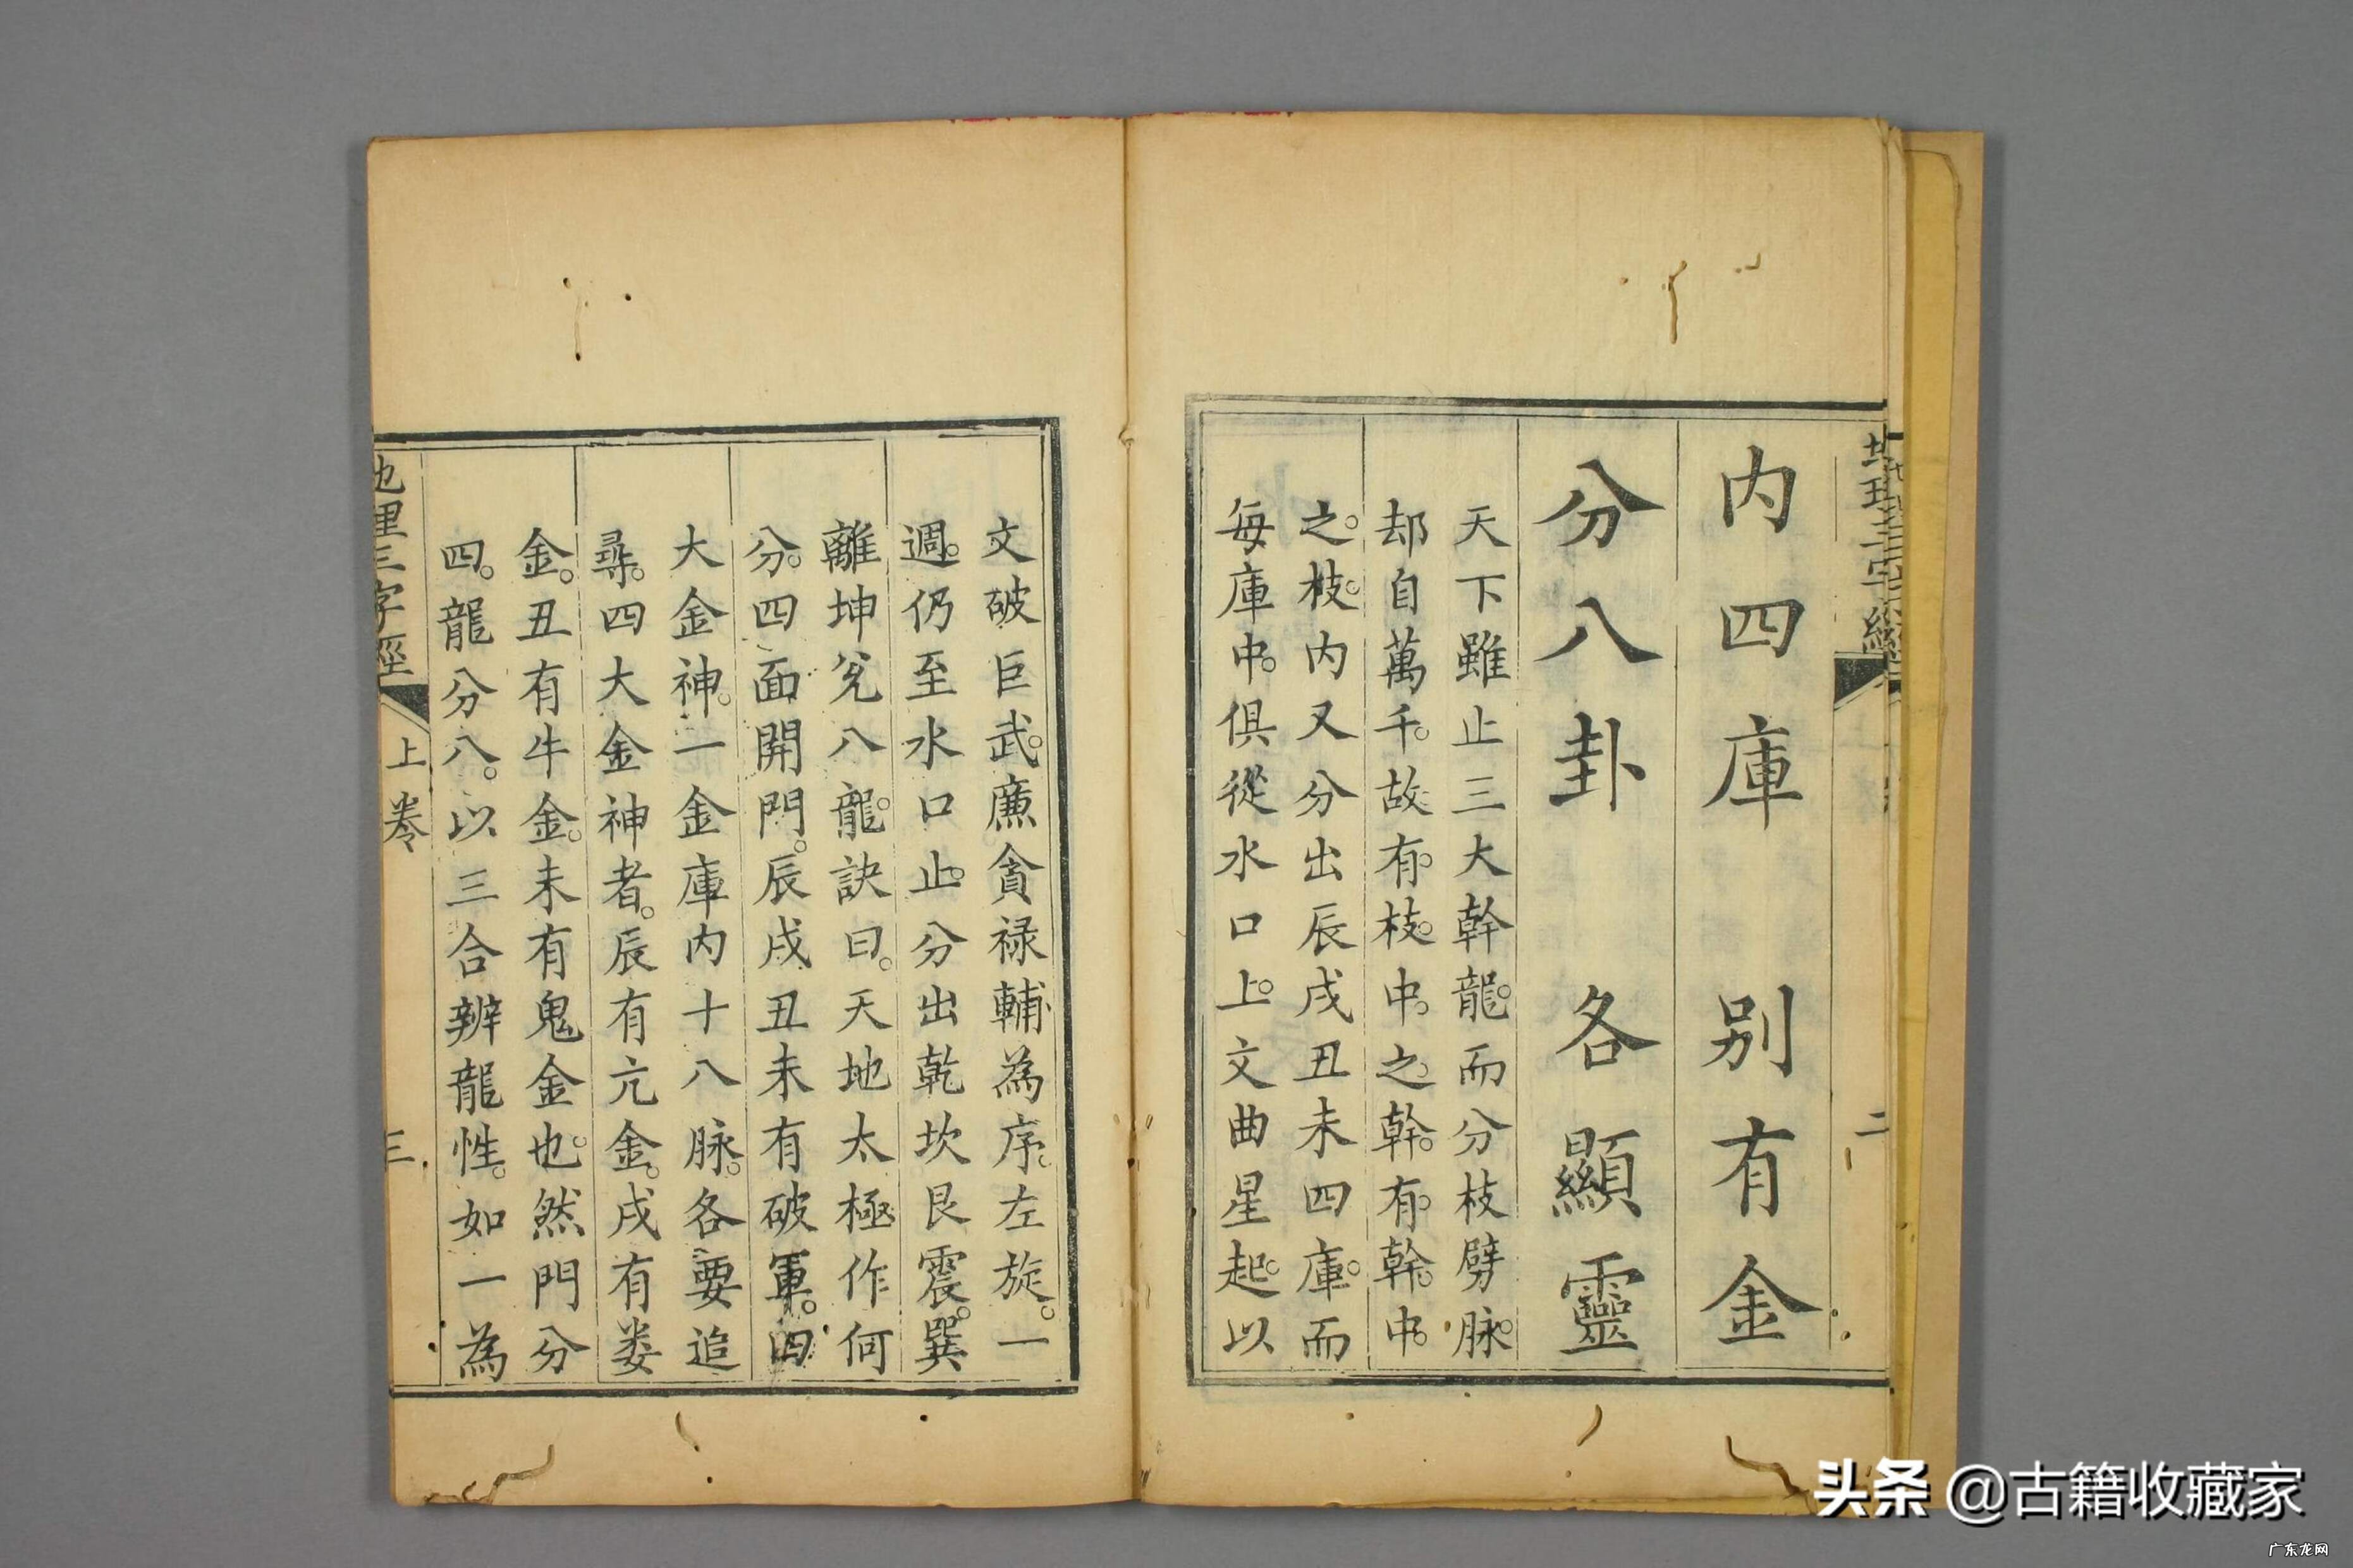 地理三字經
二
内四庫　别有金
分八卦　各顯靈
天下雖止三大幹龍。而分枝劈脉。
却自萬千。故有。枝。中。之。幹。有。幹。中。
之。枝。内又分出辰戌丑未四庫。而
每庫中。俱從水口上。文曲星起。以
文破巨武。廉貪禄輔為序。左旋。一
週。仍至水口止。分出乾坎艮震。巽
離坤兊八龍。訣曰。天地太極作何
分。四面開門。辰戌丑未有破軍。四
大金神。一金庫内十八脉。各要追
尋。四大金神者。辰有亢金。戌有婁
金。丑有牛金。未有鬼金也。然門分
四。龍分八。以三合辨龍性。如一為
地理三字經
上卷
三
头条 @古籍收藏家
广东龙网